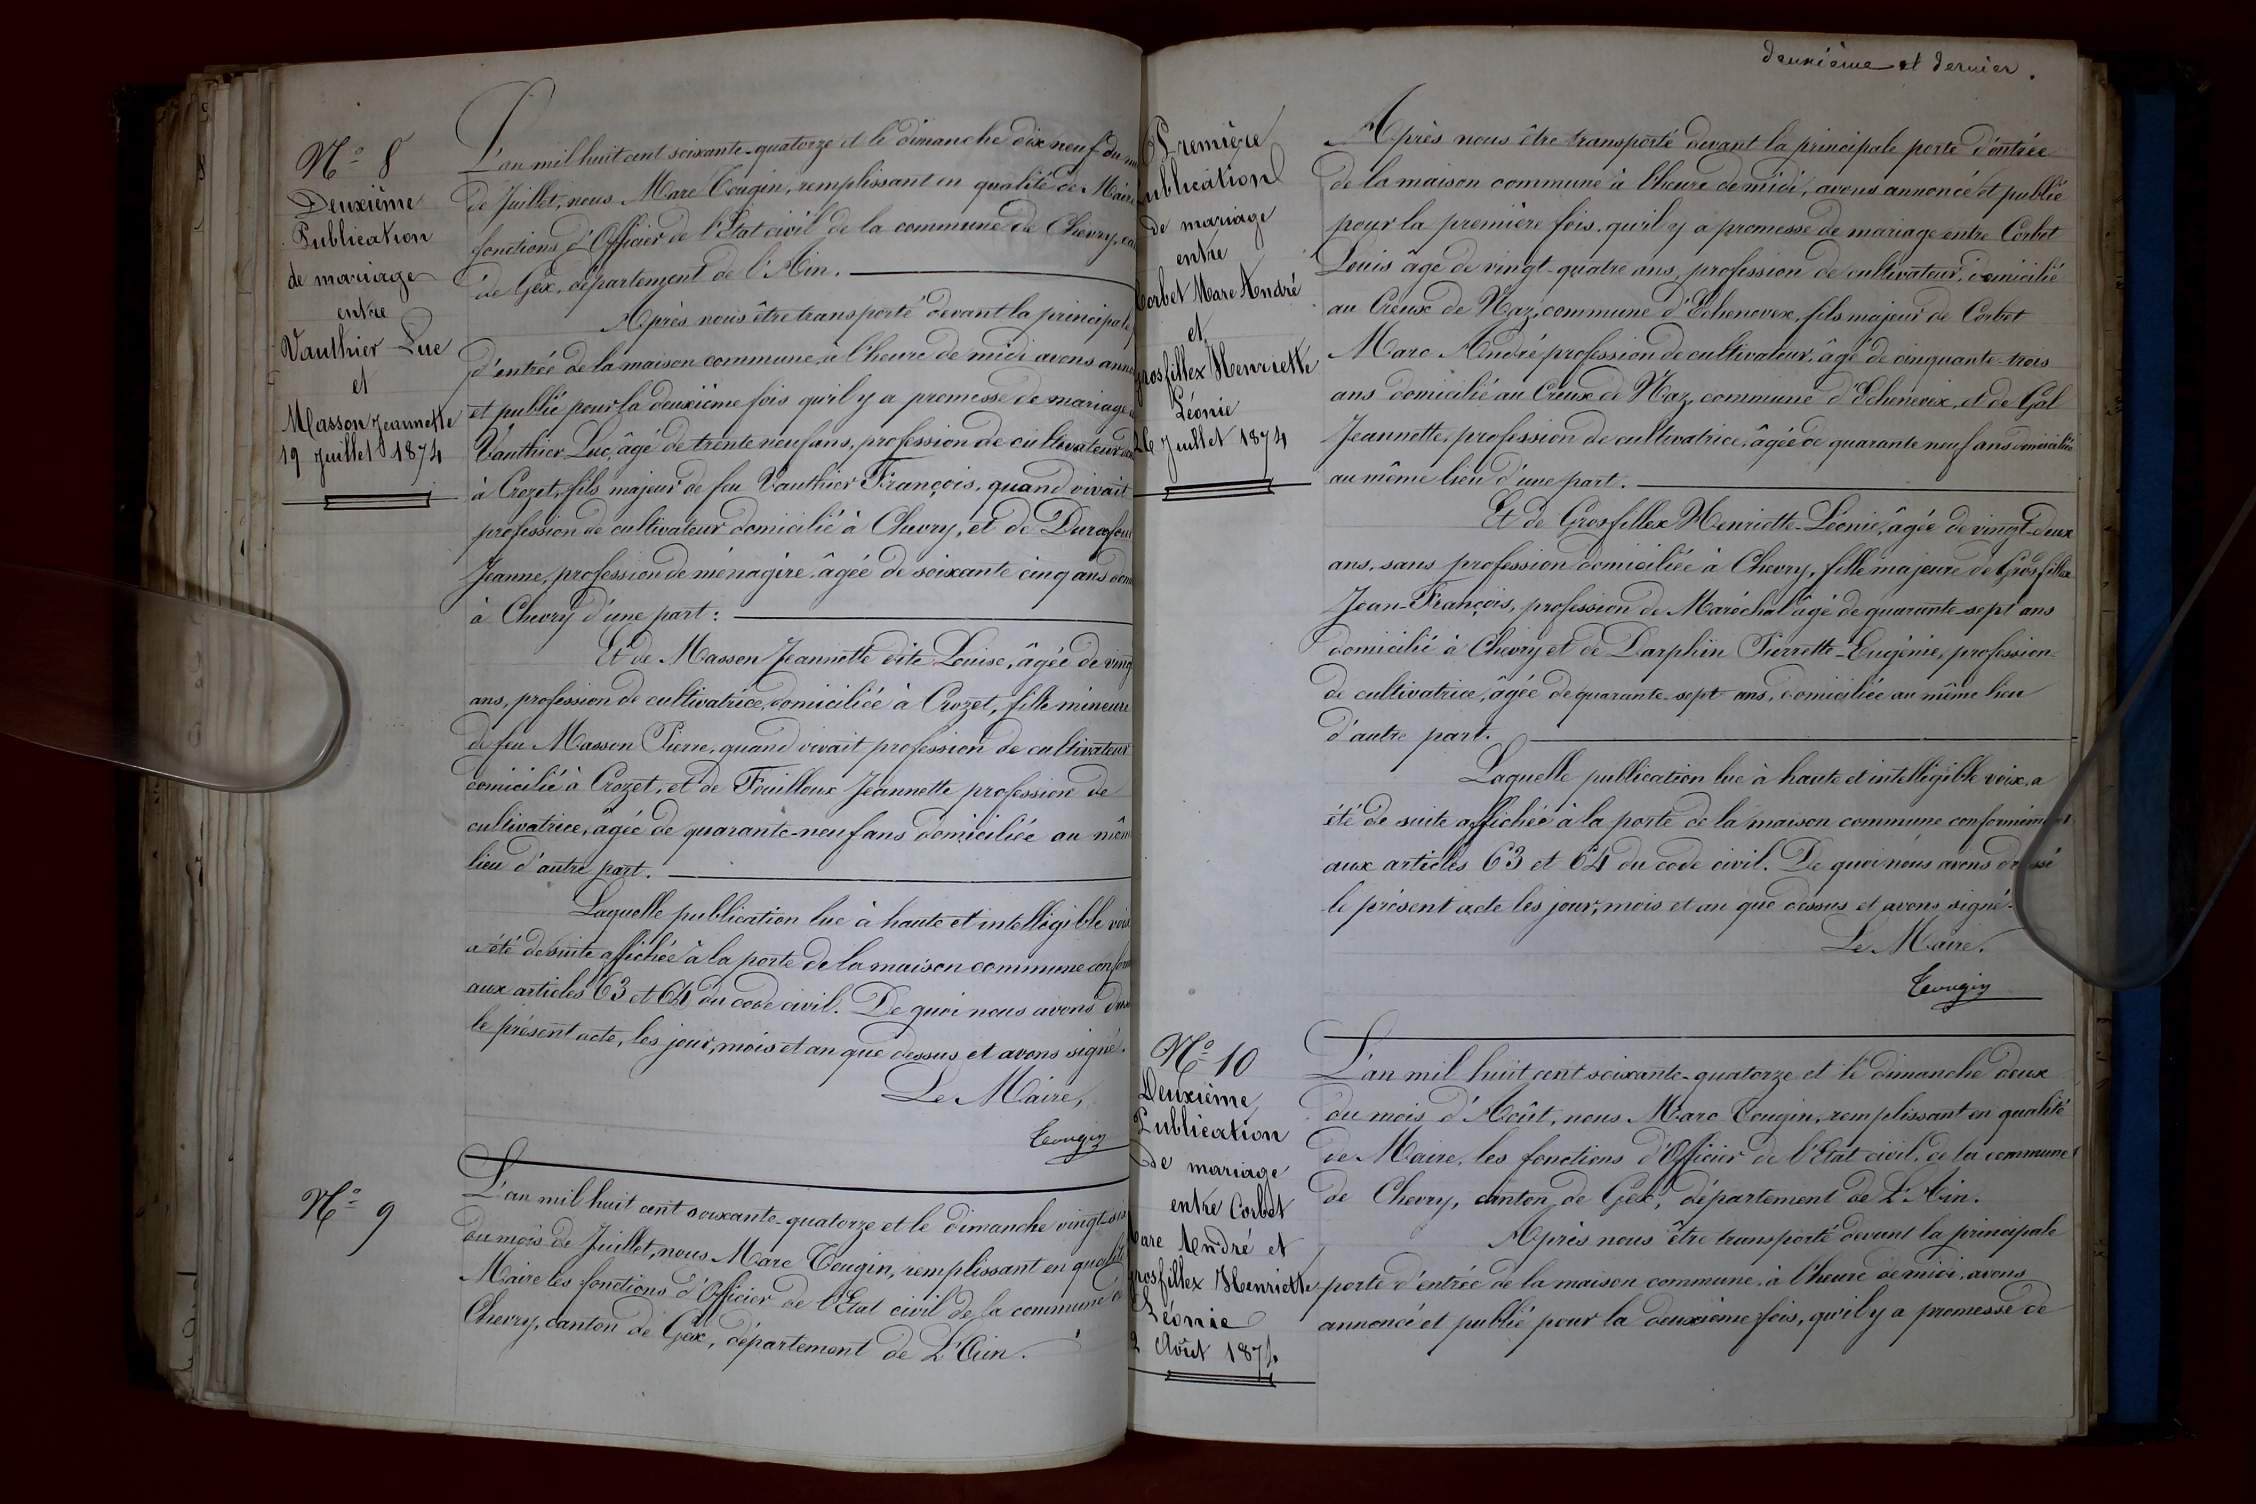 Nº 8
Deuxième
Publication
de mariage
entre
Vauthier Luc
et
Masson Jeannette
19 Juillet 1874
L'an mil huit cent soixante-quatorze et le dimanche dix neuf du
de Juillet, nous Marc Tougin, remplissant en qualité de Maire
fonctions d'Officier de l'Etat civil de la commune de Chevry,
de Gex, département de l'Ain.
Après nous être transporté devant la principale
d'entrée de la maison commune, à l'heure de midi avons
et publié pour la deuxième fois qu'il y a promesse de mariage
Vauthier Luc, âgé de trente neuf ans, profession de cultivateur
à Crozet, fils majeur de feu Vauthier François, quand vivait
profession de cultivateur domicilié à Chevry, et de
Jeanne, profession de ménagère, âgée de soixante cinq ans
à Chevry d'une part :
Et de Masson Jeannette dite Louise, âgée de vingt
ans, profession de cultivatrice, domiciliée à Crozet, fille mineure
de feu Masson Pierre, quand vivait profession de cultivateur
domicilié à Crozet, et de Fouilloux Jeannette profession de
cultivatrice, âgée de quarante-neuf ans domiciliée au
lieu d'autre part.
Laquelle publication lue à haute et intelligible voix
a été de suite affichée à la porte de la maison commune
aux articles 63 et 64 du code civil. De quoi nous avons
le présent acte, les jour, mois et an que dessus et avons signé.
Le Maire,
Tougin
Nº 9
L'an mil huit cent soixante-quatorze et le dimanche vingt-six
du mois de Juillet, nous Marc Tougin, remplissant en qualité
Maire les fonctions d'Officier de l'Etat civil de la commune
Chevry, canton de Gex, département de L'Ain.
deuxième et dernier.
Première
Publication
de mariage
entre
Corbet Marc André
et
Grosfillex Henriette
Léonie
26 Juillet 1874
Après nous être transporté devant la principale porte d'entrée
de la maison commune à l'heure de midi, avons annoncé et publié
pour la première fois, qu'il y a promesse de mariage entre Corbet
Louis âgé de vingt-quatre ans, profession de cultivateur, domicilié
au Creux de Naz, commune d'Echenevex, fils majeur de Corbet
Marc André profession de cultivateur, âgé de cinquante-trois
ans domicilié au Creux de Naz, commune d'Echenevex, et de Gal
Jeannette, profession de cultivatrice, âgée de quarante neuf ans domiciliée
au même lieu d'une part.
Et de Grosfillex Henriette-Léonie, âgée de vingt-deux
ans, sans profession domiciliée à Chevry, fille majeure de Grosfillex
Jean-François, profession de Maréchal âgé de quarante-sept ans
domicilié à Chevry et de Darphin Pierrette-Eugénie, profession
de cultivatrice, âgée de quarante-sept ans, domiciliée au même lieu
d'autre part.
Laquelle publication lue à haute et intelligible voix, a
été de suite affichée à la porte de la maison commune conformément
aux articles 63 et 64 du code civil. De quoi nous avons dressé
le présent acte les jour, mois et an que dessus et avons signé.
Le Maire.
Tougin
Nº 10
Deuxième
Publication
de mariage
entre Corbet
Marc André et
Grosfillex Henriette
Léonie
2 Août 1874
L'an mil huit cent soixante-quatorze et le dimanche deux
du mois d'Août, nous Marc Tougin, remplissant en qualité
de Maire, les fonctions d'Officier de l'Etat civil de la commune
de Chevry, canton de Gex, département de L'Ain.
Après nous être transporté devant la principale
porte d'entrée de la maison commune, à l'heure de midi, avons
annoncé et publié pour la deuxième fois, qu'il y a promesse de